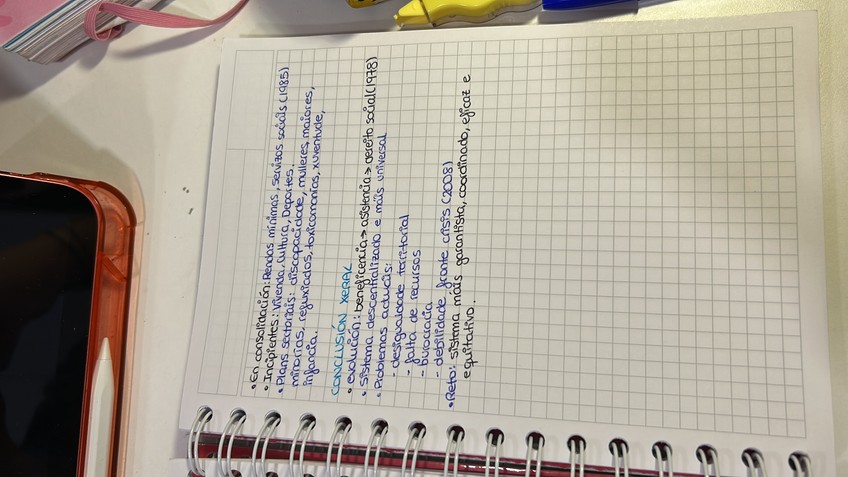 • En consolidación: Rendas mínimas, servizos sociais (1985)
• Incipientes: Vivenda, Cultura, Deportes.
• Plans sectoriais: discapacidade, mulleres, maiores,
minorías, refuxiados, toxicomanías, xuventude,
infancia.
CONCLUSIÓN XERAL
• evolución: beneficencia → asistencia → dereito social (1978)
• Sistema descentralizado e máis universal
• Problemas actuais:
- desigualdade territorial
- falta de recursos
- burocracia
- debilidade fronte crisis (2008)
• Reto: sistema máis garantista, coordinado, eficaz e
equitativo.